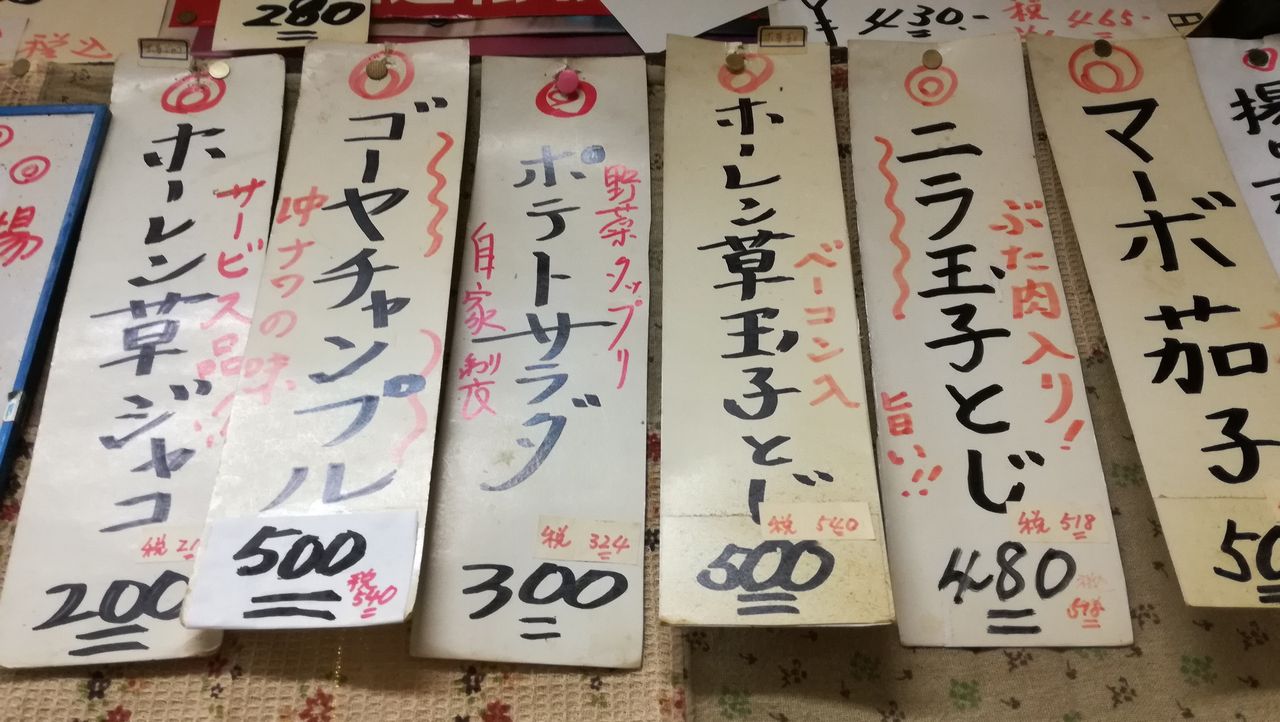 税込
280
430-
税 465-
場
ホーレン草ジャコ
サービス品
200
ゴーヤチャンプル
沖ナワの味
500
税 540
ポテトサラダ
野菜タップリ
自家製
税 324
300
ホーレン草玉子とじ
ベーコン入
税 540
500
ニラ玉子とじ
ぶた肉入り!
旨い!!
税 518
480
税 518
マーボ茄子